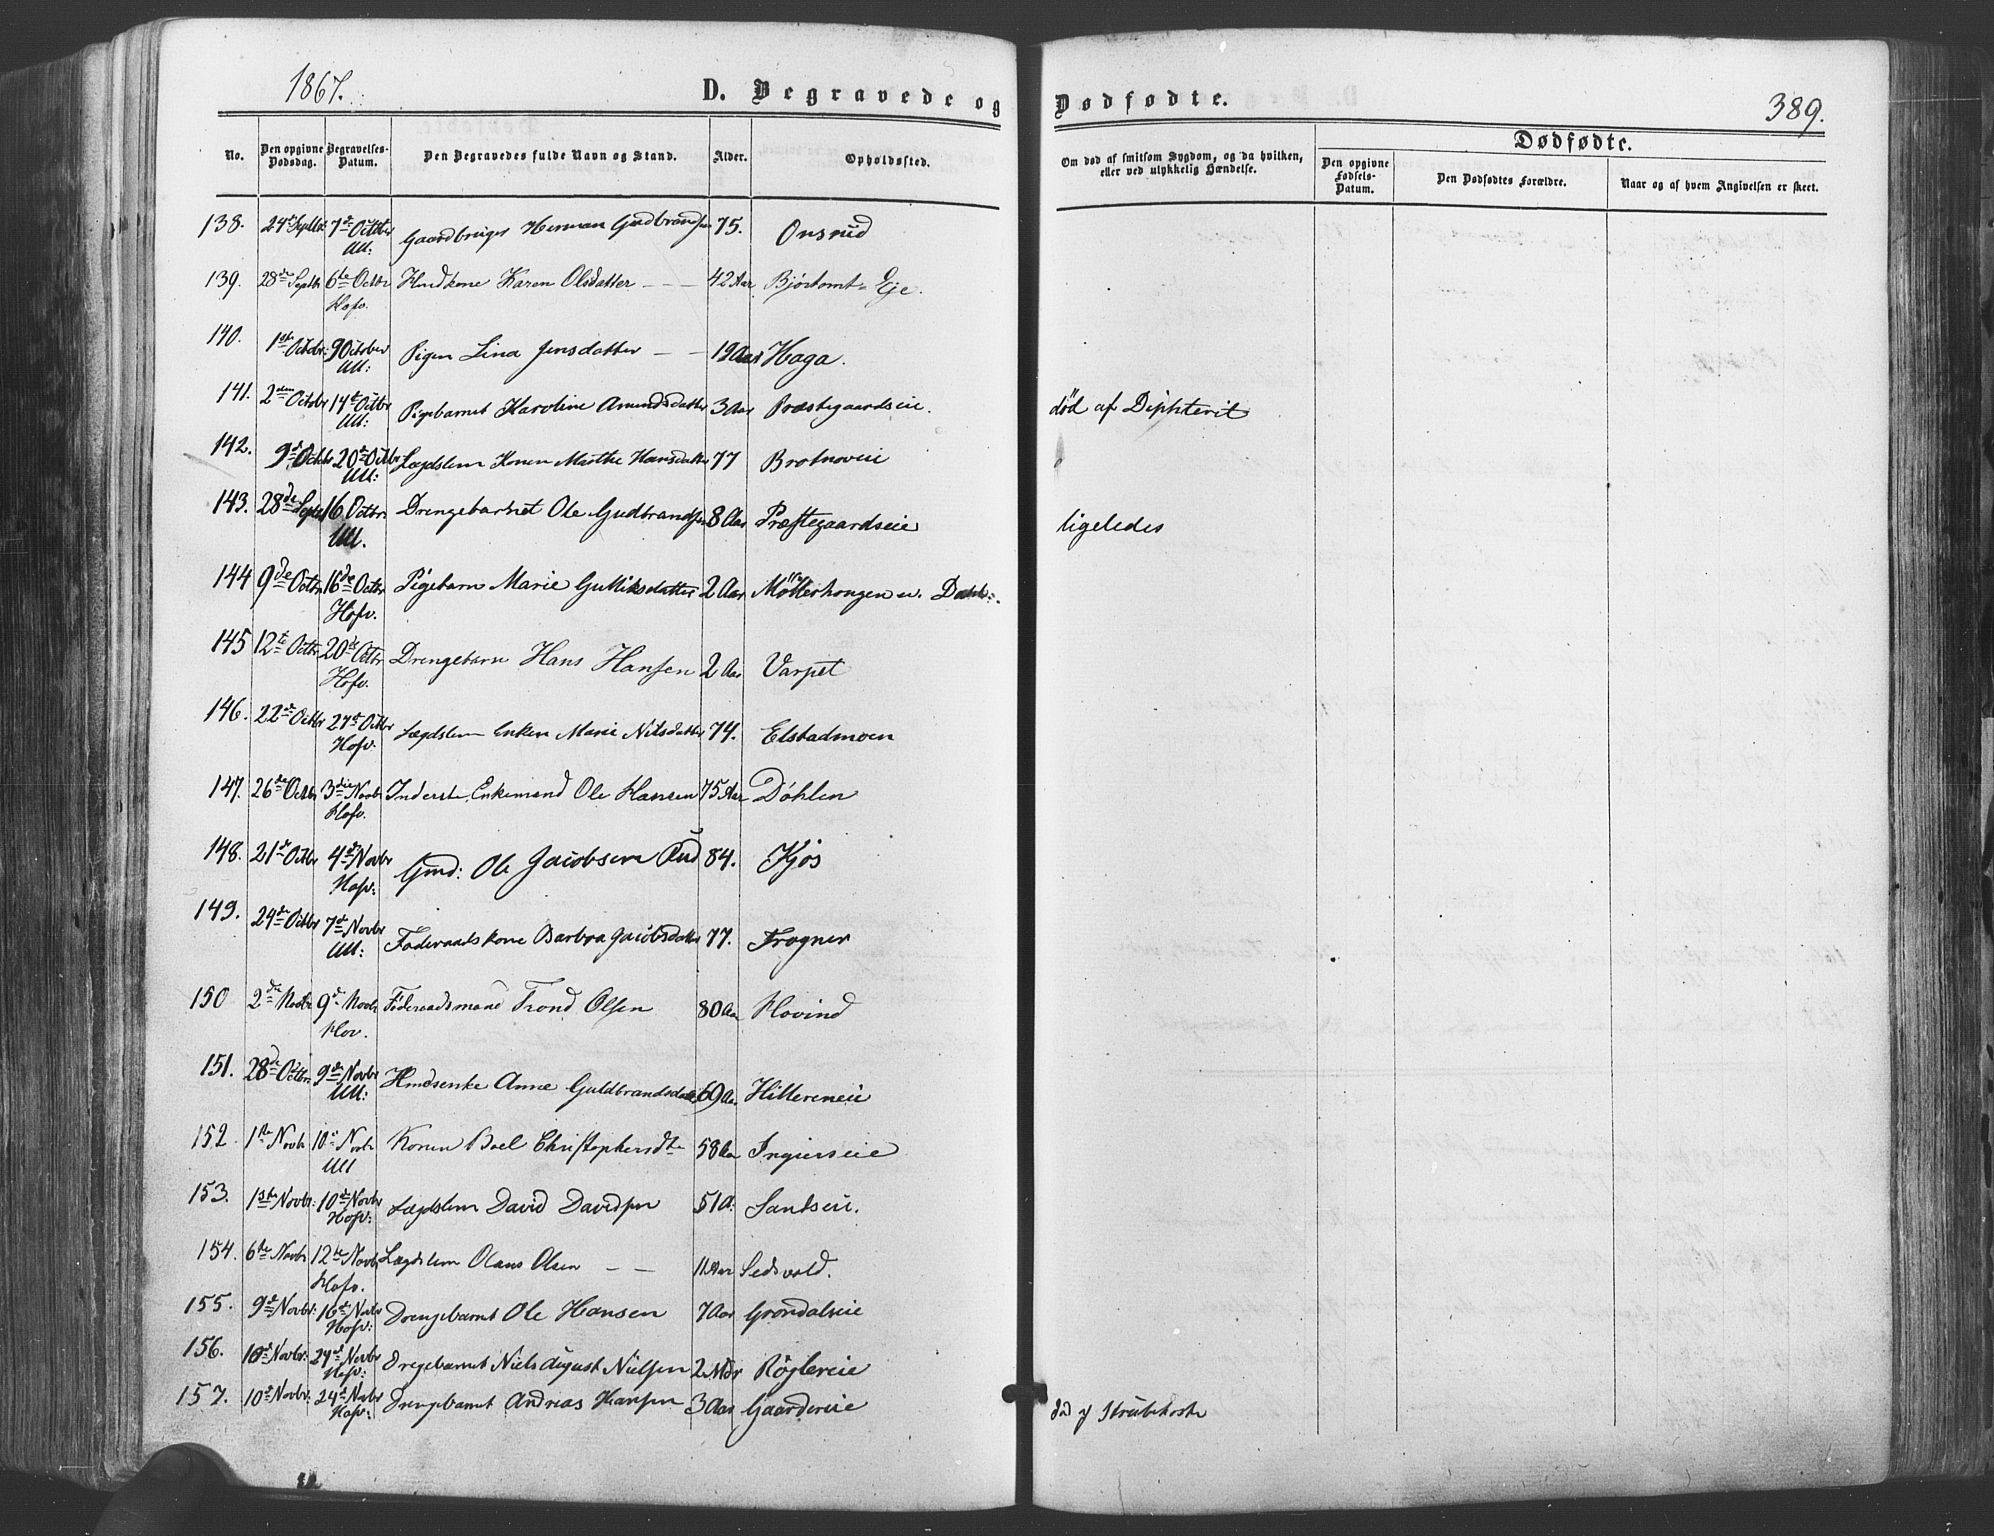 1867.
D. Begravede og Dødfødte.
389.
Dødfødte.
No. Den opgivne Dødsdag. Begravelses-Datum. Den Begravedes fulde Navn og Stand. Alder. Opholdssted. Om død af smitsom Sygdom, og da hvilken, eller ved ulykkelig Hændelse. Den opgivne Fødsels-Datum. Den Dødfødtes Forældre. Naar og af hvem Angivelsen er skeet.
138. 24de Septbr 7de Octbr Gaardbruger Herman Gudbrandsen 75. Onsrud
Ull:
139. 28de Septbr 6te Octbr Karen Olsdatter - - - 42 Aar Eje.
Hofv.
140. 1ste Octbr: 9 October Pigen Lina Jensdatter - - 19 Aar Haga.
Ull:
141. 2den Octobr 14de Octbr Pigebarnet Karoline Amundsdatter 3 Aar Præstegaardseie. død af Diphterit
Ull:
142. 9de Octbr 20de Octbr Lægdslem Konen Marthe Hansdatter 77 Brotnoveie
Ull:
143. 28de Septbr 16 Octbr Drengebarnet Ole Gudbrandsen 8 Aar Præstegaardseie ligeledes
Ull.
144 9de Octbr 16de Octbr Pigebarn Marie Gulliksdatter 2 Aar Dahl
Hofv.
145 12te Octbr 20de Octbr Drengebarn Hans Hansen 2 Aar Varpet
Hofv.
146. 22de Octbr 27de Octbr Lægdslem Enken Marie Nilsdatter 74. Elstadmoen
Hofv:
147. 26de Octbr 3die Novbr Inderst, Enkemand Ole Hansen 75 Aar Døhlen
Hofv.
148. 21de Octbr 4de Novbr Gmd: Ole Jacobsen Rud 84. Kjos
Hofv:
149. 24de Octbr 7de Novbr Føderaadskone Barbra Jacobsdatter 77. Frogner
Ull:
150 2den Novbr 9de Novbr Føderaadsmand Trond Olsen 80 Aar Hovind
Hov.
151. 28de Octbr 9de Novbr Hmdsenke Anne Guldbrandsdatter 69 Aar Hillereneie
Ull:
152. 1ste Novbr 10de Novbr Konen Boel Christophersdtr 58 Aar Ingierseie
Ull
153. 1ste Novbr: 10de Novbr Lægdslem David Davidsen 51 A: Santseie.
Hofv:
154. 6te Novbr 12te Novbr Lægdslem Olaus Olsen - - 11 Aar Sedsvold.
Hofv.
155. 9de Novbr: 16de Novbr Drengebarnet Ole Hansen 7 Aar Grøndalseie
Hofv:
156. 10de Novbr: 24de Novbr Drengebarnet Niels August Nielsen 2 Mdr Røglereie
Hofv:
157. 10de Novbr: 24de Novbr Drengebarnet Andreas Hansen 3 Aar Gaardereie død af Strubehoste
Hofv: